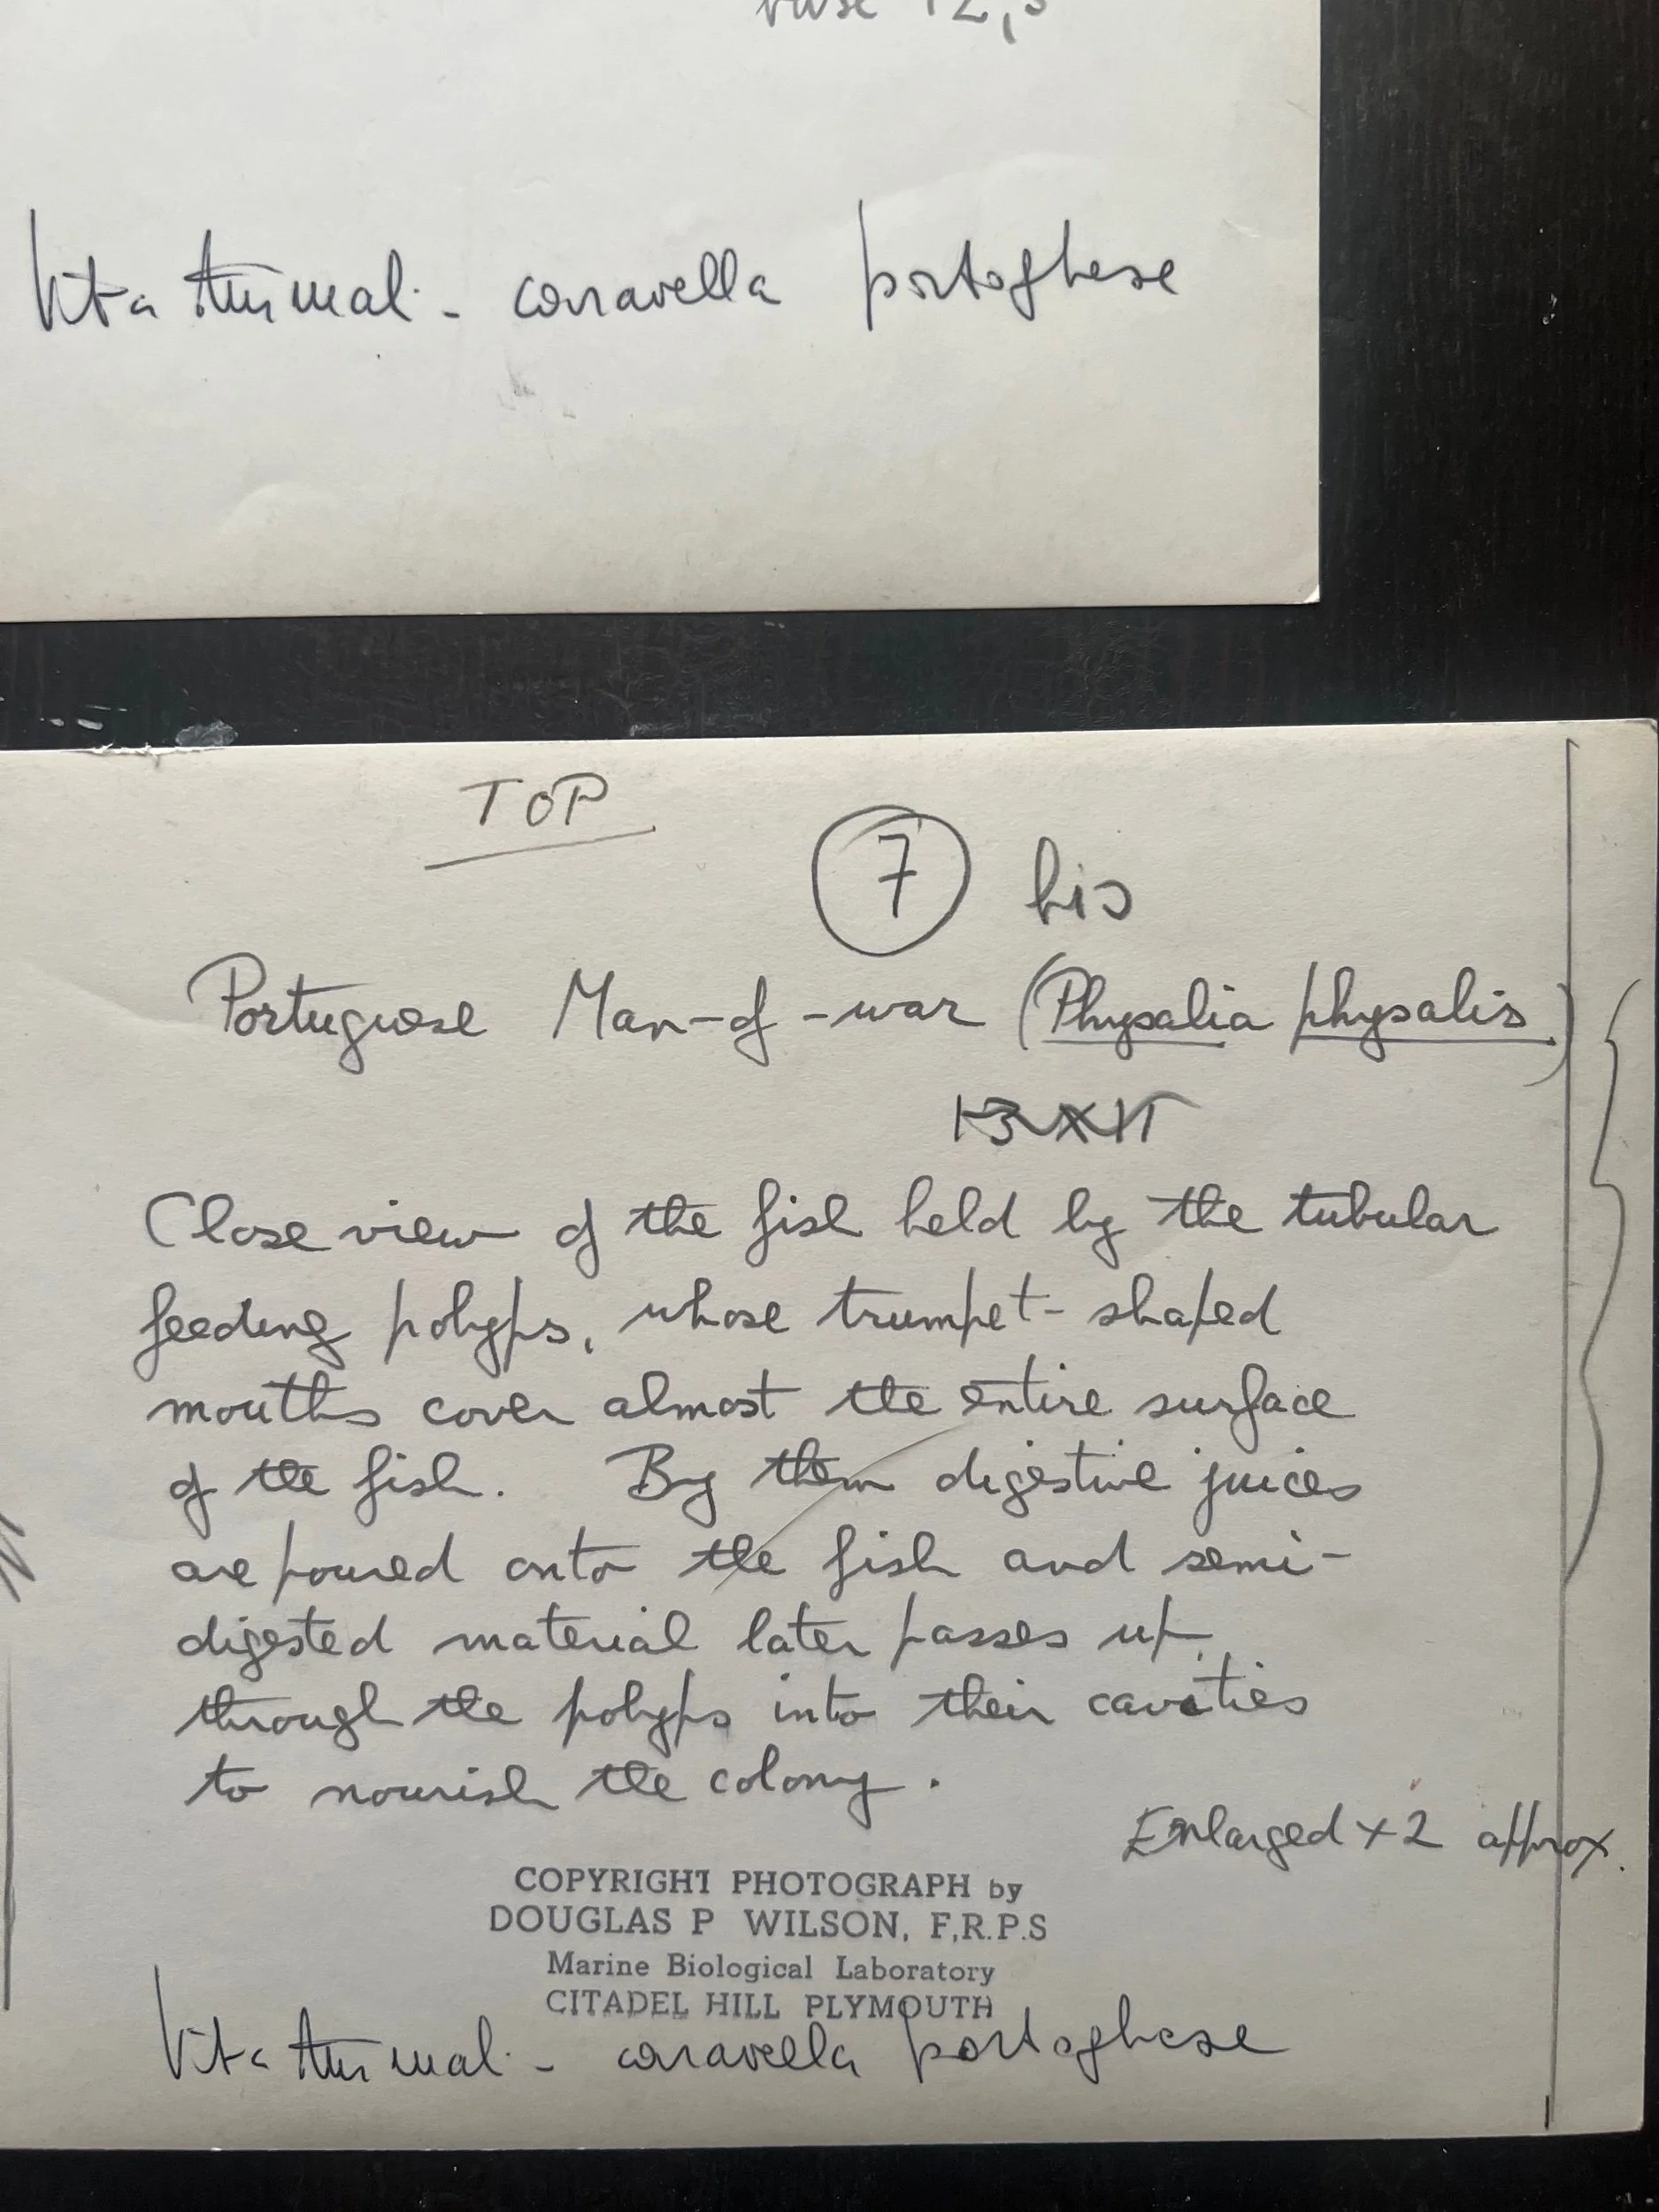 base 12,5
Vita animal. - caravella portoghese
TOP
7 bis
Portuguese Man-of-war (Physalia physalis)
Close view of the fish held by the tubular
feeding polyps, whose trumpet-shaped
mouths cover almost the entire surface
of the fish. By them digestive juices
are poured onto the fish and semi-
digested material later passes up
through the polyps into their cavities
to nourish the colony.
Enlarged x 2 approx.
COPYRIGHT PHOTOGRAPH by
DOUGLAS P WILSON, F.R.P.S
Marine Biological Laboratory
CITADEL HILL PLYMOUTH
Vita animal. - caravella portoghese